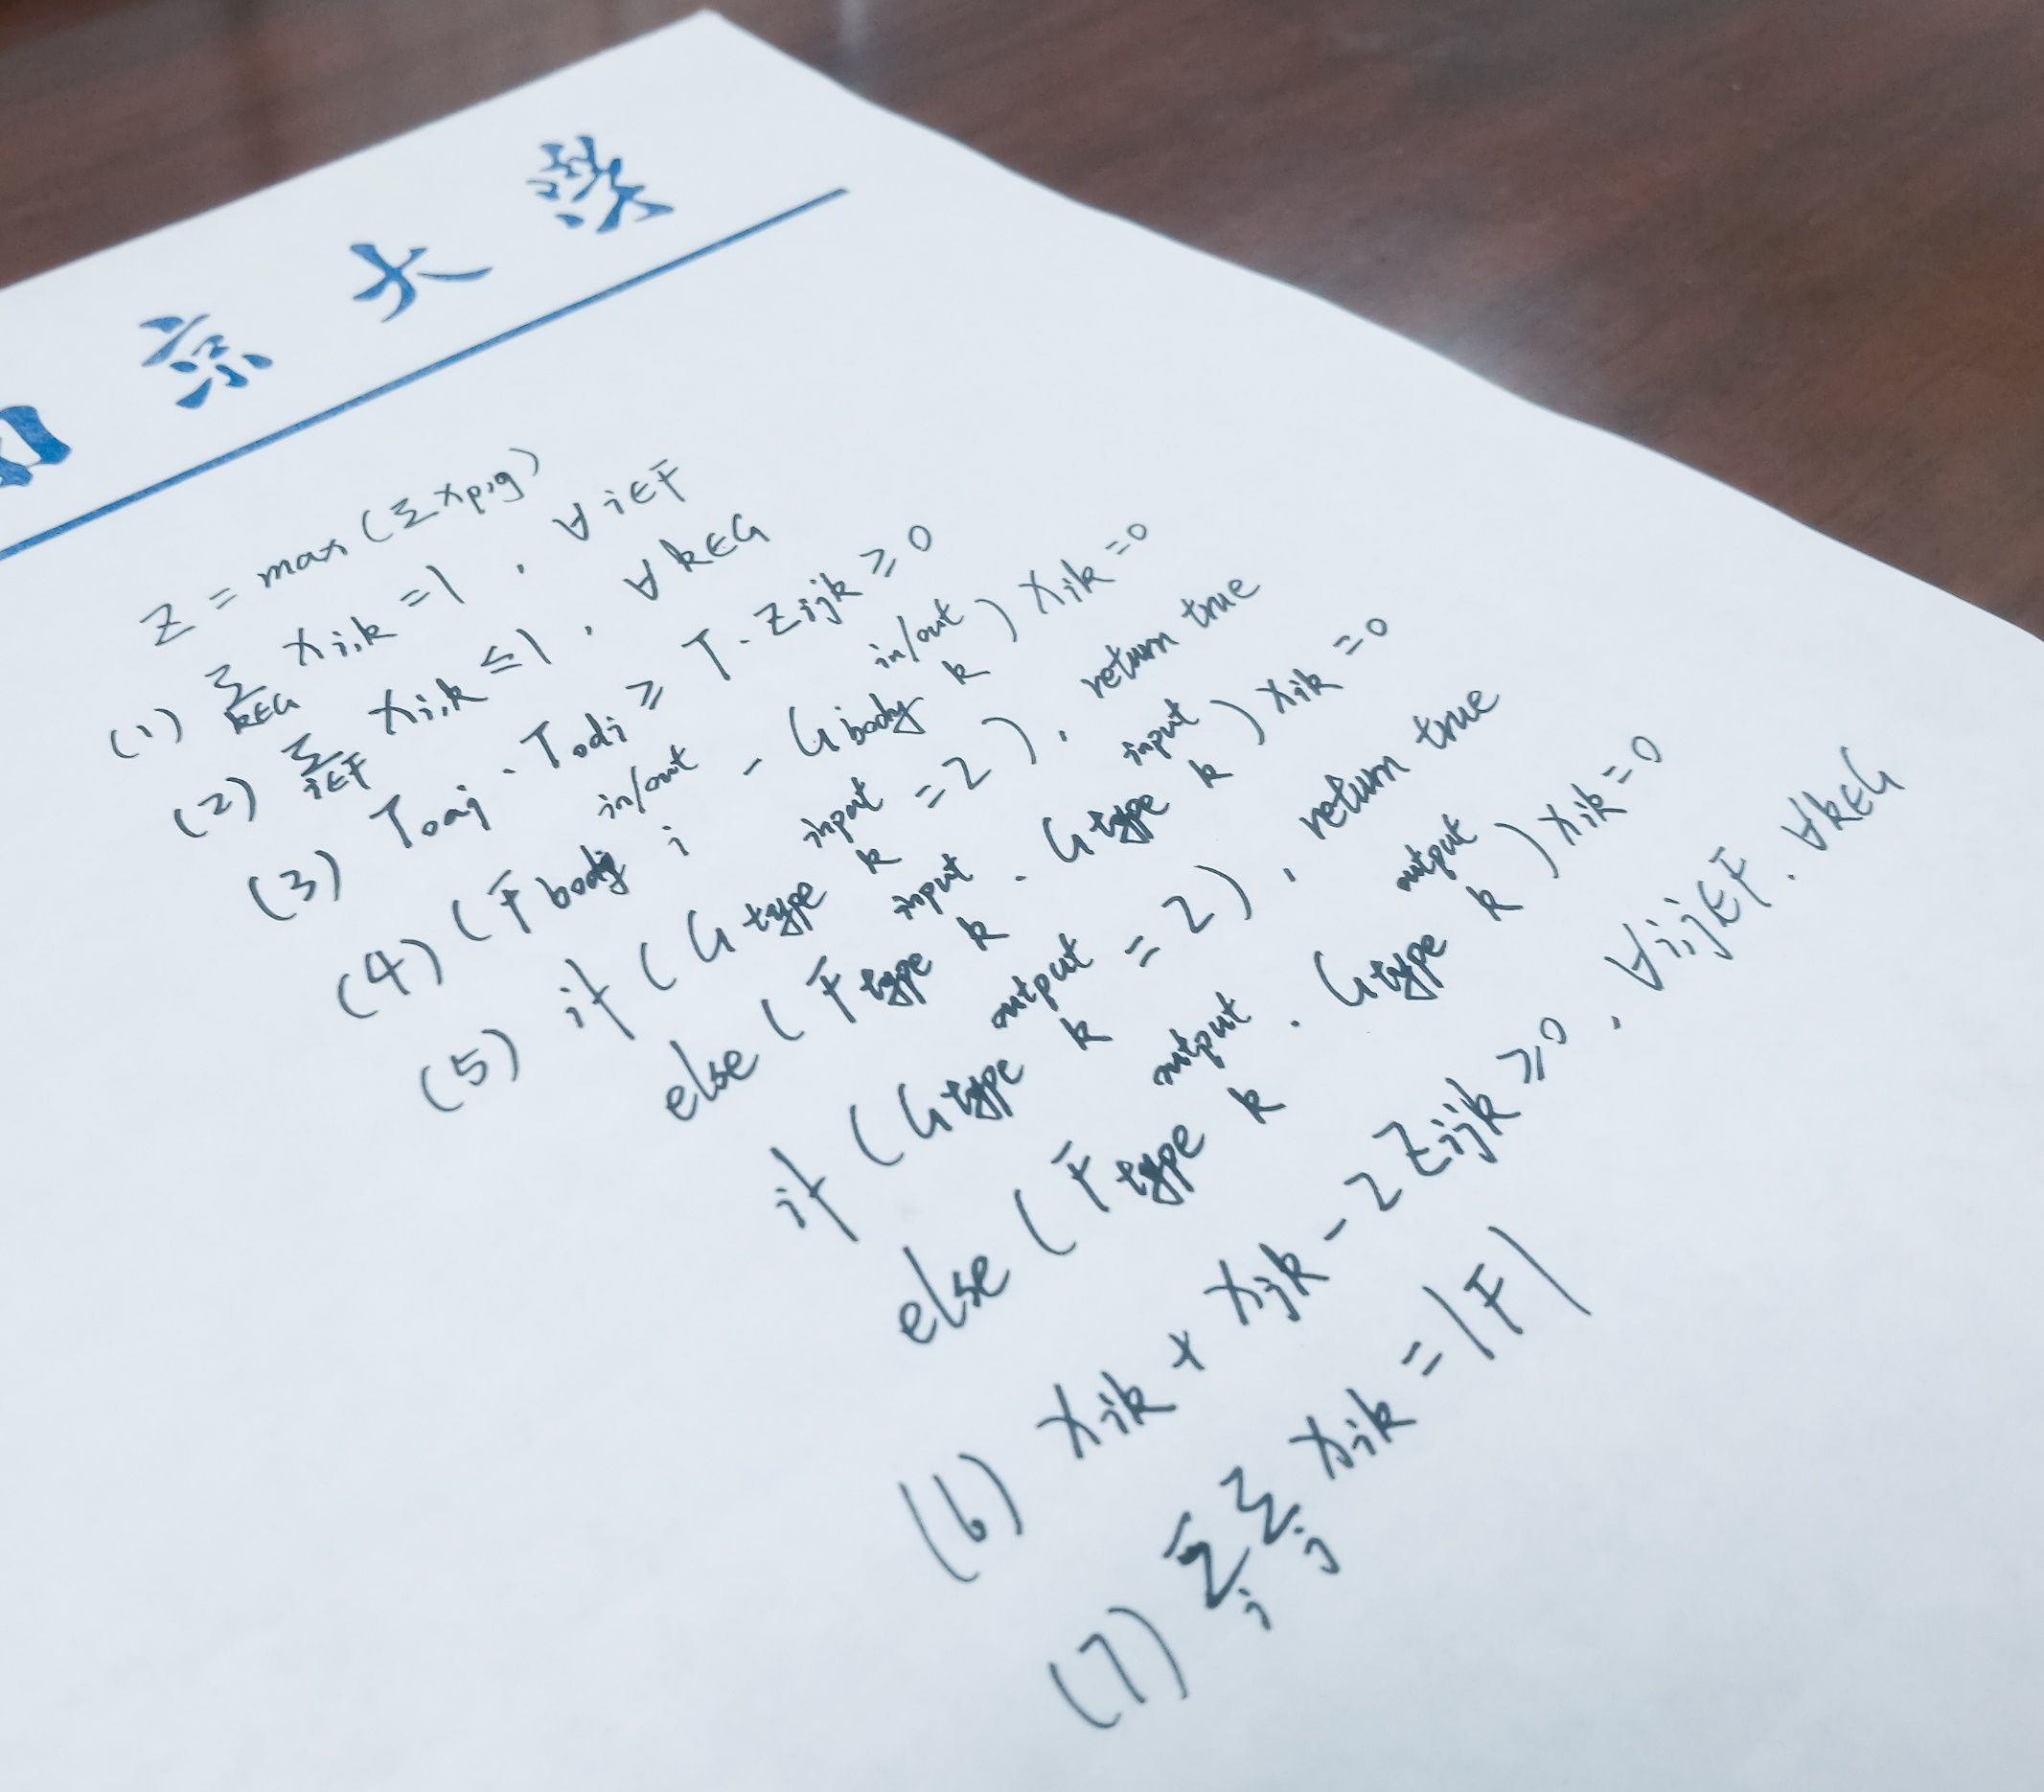 京大学
Z = max (Σ xp,g)
(1) Σ k∈G xi,k = 1 , ∀ i∈F
(2) Σ i∈F xi,k ≤ 1 , ∀ k∈G
(3) Toaj - Todi ≥ T · Zijk ≥ 0
(4) (F body i in/out - G body k in/out) xik = 0
(5) if (G type k input = 2) , return true
else (F type k input - G type k input) xik = 0
if (G type k output = 2) , return true
else (F type k output - G type k output) xik = 0
(6) xik + xjk - 2 Zijk ≥ 0 , ∀ i,j∈F , ∀k∈G
(7) Σi Σj xik = |F|